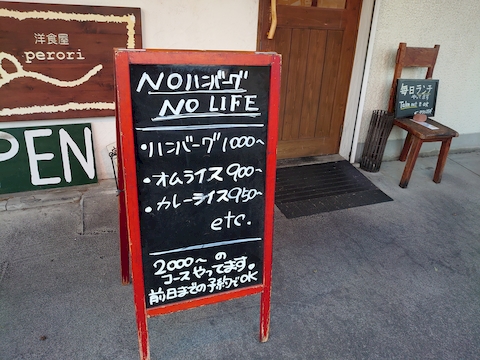 洋食屋
perori
PEN
NOハンバーグ
NO LIFE
・ハンバーグ1000〜
・オムライス900〜
・カレーライス950〜
etc.
2000〜の
コースやってます
前日までの予約でOK
毎日ランチ
やってます
Take out も OK